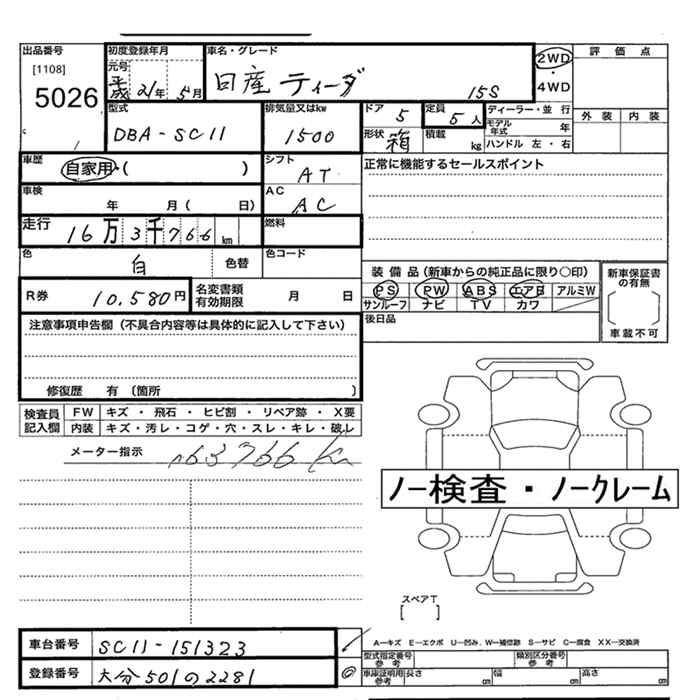 出品番号 初度登録年月 車名・グレード 評価点
[1108] 元号 2WD・4WD
5026 21年 5月 日産 ティーダ 15S
型式 排気量又はkw ドア 5 定員 5人 ディーラー・並行 外装 内装
DBA-SC11 1500 形状 箱 積載 kg モデル年式 年
ハンドル 左・右
車歴 自家用・( ) シフト AT 正常に機能するセールスポイント
車検 年 月( 日) AC AC
走行 16万3千766km 燃料
色 白 色替 色コード
装備品(新車からの純正品に限り○印) 新車保証書の有無
R券 10,580円 名変書類有効期限 月 日
PS PW ABS エアB アルミW
サンルーフ ナビ TV カワ
[ ] 車載不可
注意事項申告欄(不具合内容等は具体的に記入して下さい) 後日品
修復歴 有 (箇所 )
検査員記入欄 FW キズ・飛石・ヒビ割・リペア跡・X要
内装 キズ・汚レ・コゲ・穴・スレ・キレ・破レ
メーター指示 163766 km
ノー検査・ノークレーム
スペアT
[ ]
A-キズ E-エクボ U-凹み W-補修跡 S-サビ C-腐食 XX-交換済
車台番号 SC11-151323
型式指定番号 参考 類別区分番号 参考
登録番号 大分501の2281
車庫証明用 参考 長さ cm 幅 cm 高さ cm